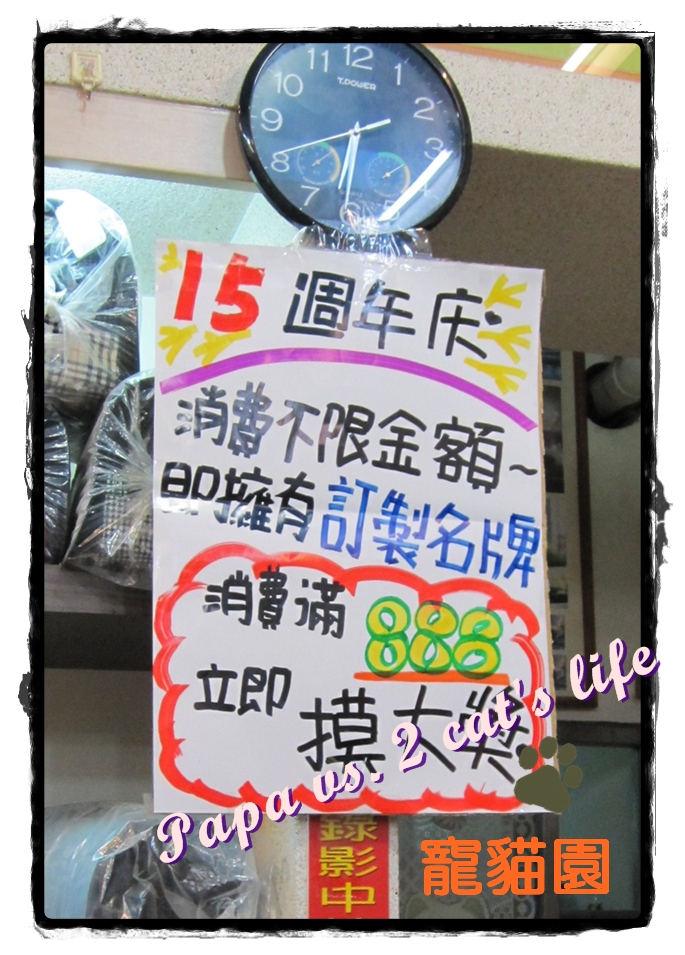 12
11
1
10
T.POWER
2
9
3
8
7
6
5
15 週年庆
消費不限金額~
即擁有訂製名牌
消費滿 888
立即
摸大獎
Papa vs. 2 cat's life
錄影中
寵貓園